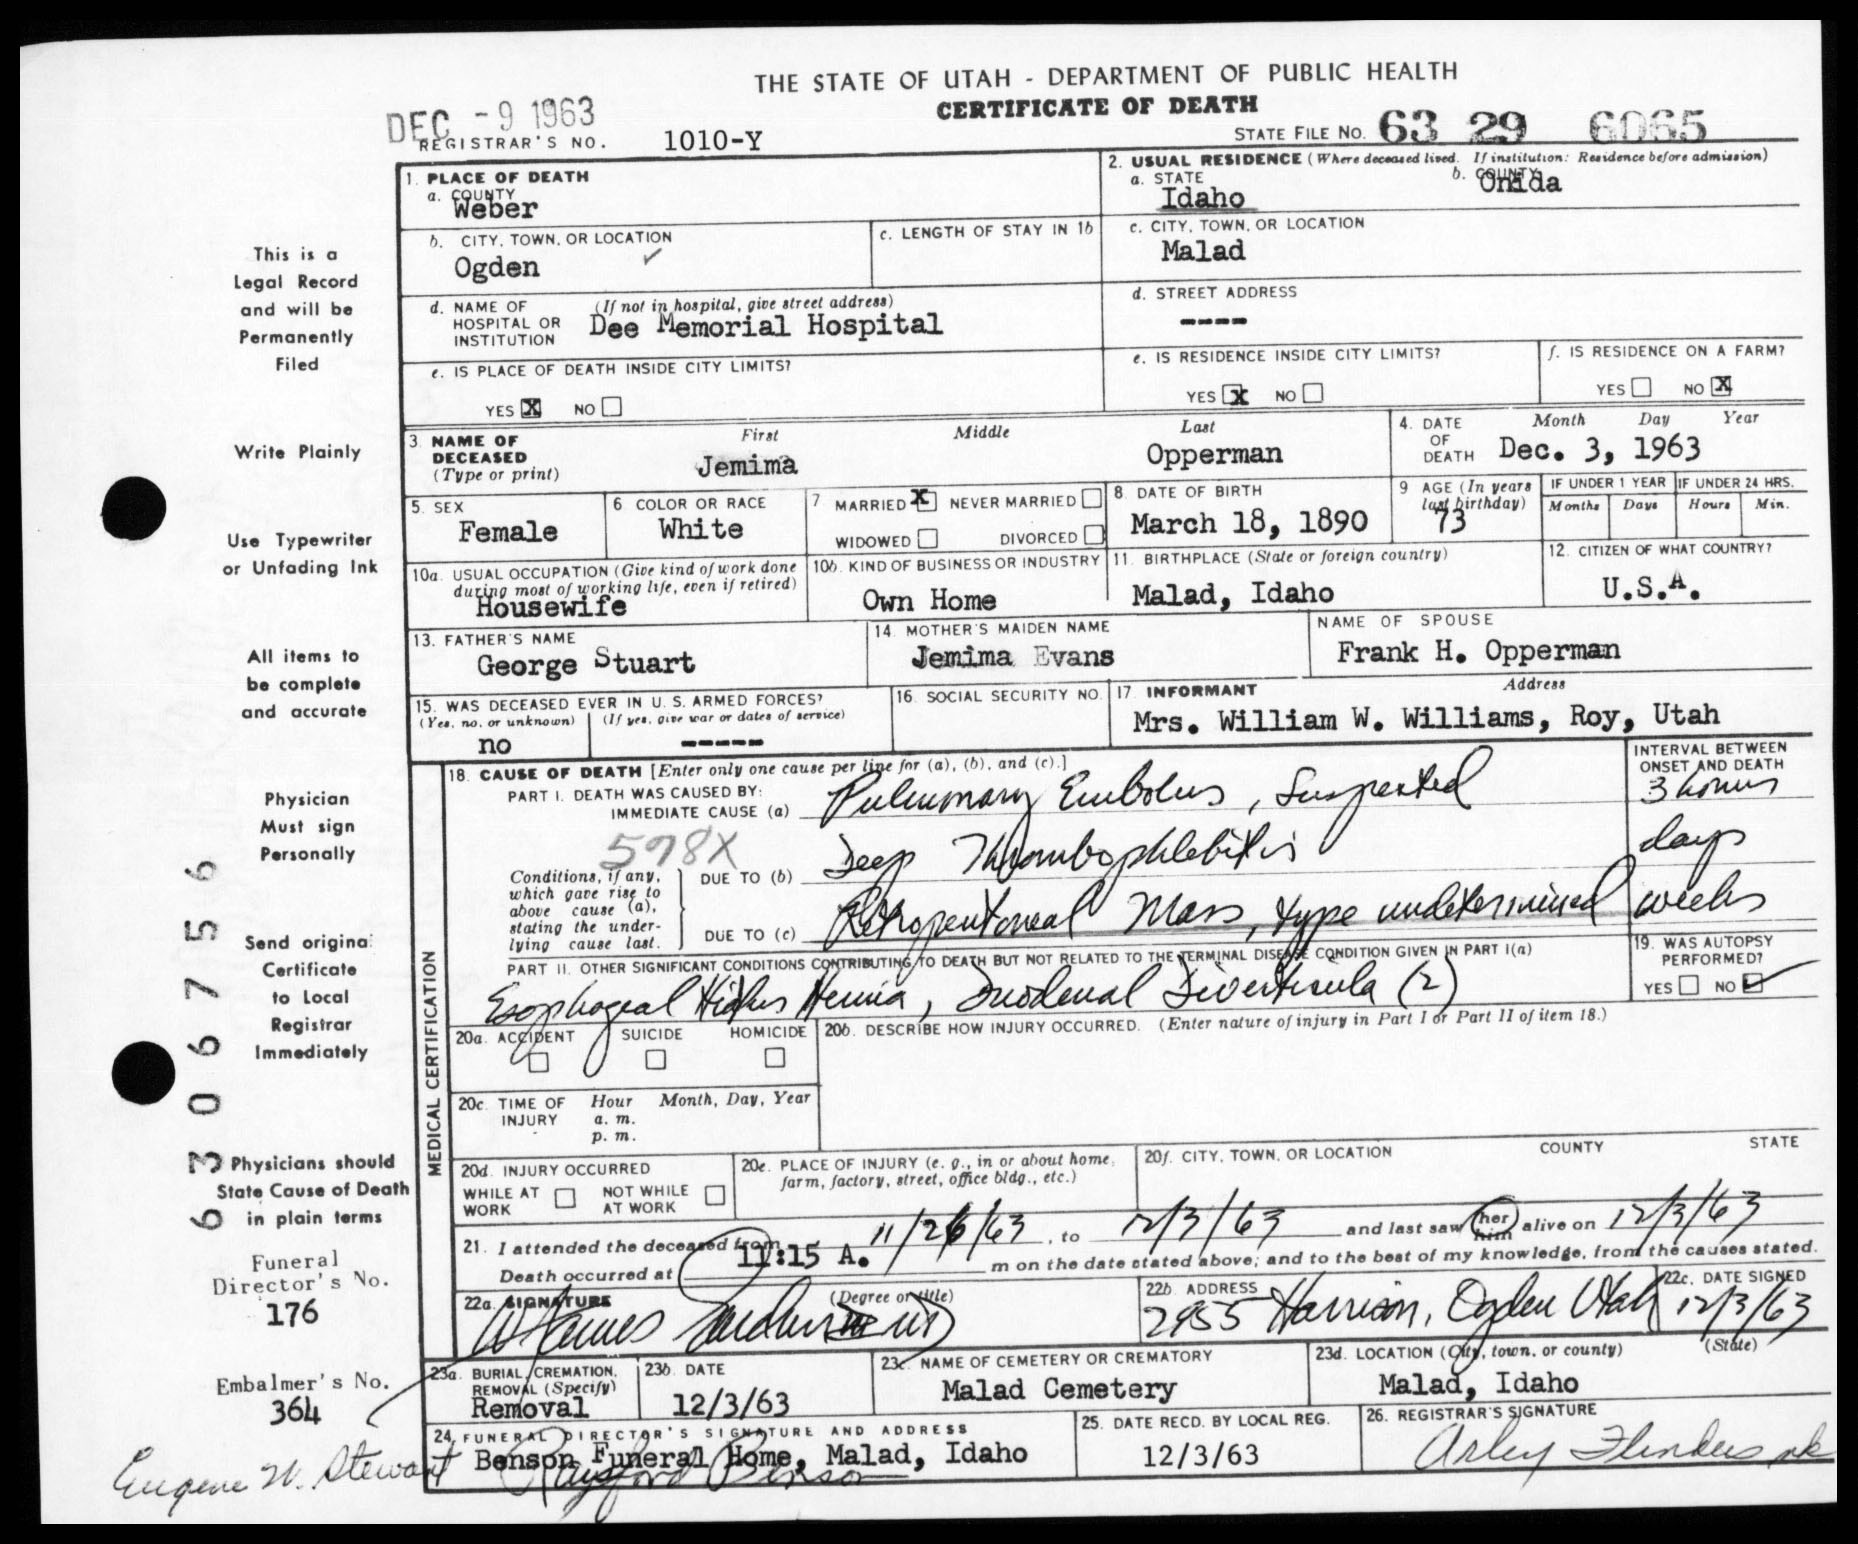 THE STATE OF UTAH - DEPARTMENT OF PUBLIC HEALTH
CERTIFICATE OF DEATH
DEC - 9 1963
REGISTRAR'S NO. 1010-Y
STATE FILE NO. 63 29 6065
1. PLACE OF DEATH
a. COUNTY
Weber
2. USUAL RESIDENCE (Where deceased lived. If institution: Residence before admission)
a. STATE
Idaho
b. COUNTY
Onida
b. CITY, TOWN, OR LOCATION
Ogden
c. LENGTH OF STAY IN 1b
c. CITY, TOWN, OR LOCATION
Malad
d. NAME OF HOSPITAL OR INSTITUTION
(If not in hospital, give street address)
Dee Memorial Hospital
d. STREET ADDRESS
----
e. IS PLACE OF DEATH INSIDE CITY LIMITS?
YES X NO
e. IS RESIDENCE INSIDE CITY LIMITS?
YES X NO
f. IS RESIDENCE ON A FARM?
YES NO X
3. NAME OF DECEASED
(Type or print)
First Middle Last
Jemima Opperman
4. DATE OF DEATH
Month Day Year
Dec. 3, 1963
5. SEX
Female
6 COLOR OR RACE
White
7 MARRIED X NEVER MARRIED
WIDOWED DIVORCED
8 DATE OF BIRTH
March 18, 1890
9 AGE (In years last birthday)
73
IF UNDER 1 YEAR
Months Days
IF UNDER 24 HRS.
Hours Min.
10a. USUAL OCCUPATION (Give kind of work done during most of working life, even if retired)
Housewife
10b. KIND OF BUSINESS OR INDUSTRY
Own Home
11. BIRTHPLACE (State or foreign country)
Malad, Idaho
12. CITIZEN OF WHAT COUNTRY?
U.S.A.
13. FATHER'S NAME
George Stuart
14. MOTHER'S MAIDEN NAME
Jemima Evans
NAME OF SPOUSE
Frank H. Opperman
15. WAS DECEASED EVER IN U. S. ARMED FORCES?
(Yes, no, or unknown) (If yes, give war or dates of service)
no -----
16. SOCIAL SECURITY NO.
17. INFORMANT Address
Mrs. William W. Williams, Roy, Utah
MEDICAL CERTIFICATION
18. CAUSE OF DEATH [Enter only one cause per line for (a), (b), and (c).]
INTERVAL BETWEEN ONSET AND DEATH
PART I. DEATH WAS CAUSED BY:
IMMEDIATE CAUSE (a) Pulmonary Embolus, Suspected 3 hours
578X
Conditions, if any, which gave rise to above cause (a), stating the underlying cause last.
DUE TO (b) Deep Thrombophlebitis days
DUE TO (c) Retroperitoneal Mass, type undetermined weeks
PART II. OTHER SIGNIFICANT CONDITIONS CONTRIBUTING TO DEATH BUT NOT RELATED TO THE TERMINAL DISEASE CONDITION GIVEN IN PART I(a)
Esophageal Hiatus Hernia, Duodenal Diverticula (2)
19. WAS AUTOPSY PERFORMED?
YES NO ✓
20a. ACCIDENT SUICIDE HOMICIDE
20b. DESCRIBE HOW INJURY OCCURRED. (Enter nature of injury in Part I or Part II of item 18.)
20c. TIME OF INJURY
Hour Month, Day, Year
a. m.
p. m.
20d. INJURY OCCURRED
WHILE AT WORK NOT WHILE AT WORK
20e. PLACE OF INJURY (e. g., in or about home, farm, factory, street, office bldg., etc.)
20f. CITY, TOWN, OR LOCATION COUNTY STATE
21. I attended the deceased from 11/26/63, to 12/3/63 and last saw her him alive on 12/3/63
Death occurred at 11:15 A. m on the date stated above; and to the best of my knowledge, from the causes stated.
22a. SIGNATURE (Degree or title)
22b. ADDRESS
2955 Harrison, Ogden Utah
22c. DATE SIGNED
12/3/63
23a. BURIAL, CREMATION, REMOVAL (Specify)
Removal
23b. DATE
12/3/63
23c. NAME OF CEMETERY OR CREMATORY
Malad Cemetery
23d. LOCATION (City, town, or county) (State)
Malad, Idaho
24. FUNERAL DIRECTOR'S SIGNATURE AND ADDRESS
Benson Funeral Home, Malad, Idaho
Benson
25. DATE RECD. BY LOCAL REG.
12/3/63
26. REGISTRAR'S SIGNATURE
Arley Flinders
This is a
Legal Record
and will be
Permanently
Filed
Write Plainly
Use Typewriter
or Unfading Ink
All items to
be complete
and accurate
Physician
Must sign
Personally
Send original
Certificate
to Local
Registrar
Immediately
Physicians should
State Cause of Death
in plain terms
Funeral
Director's No.
176
Embalmer's No.
364
Eugene W. Stewart
63 067566